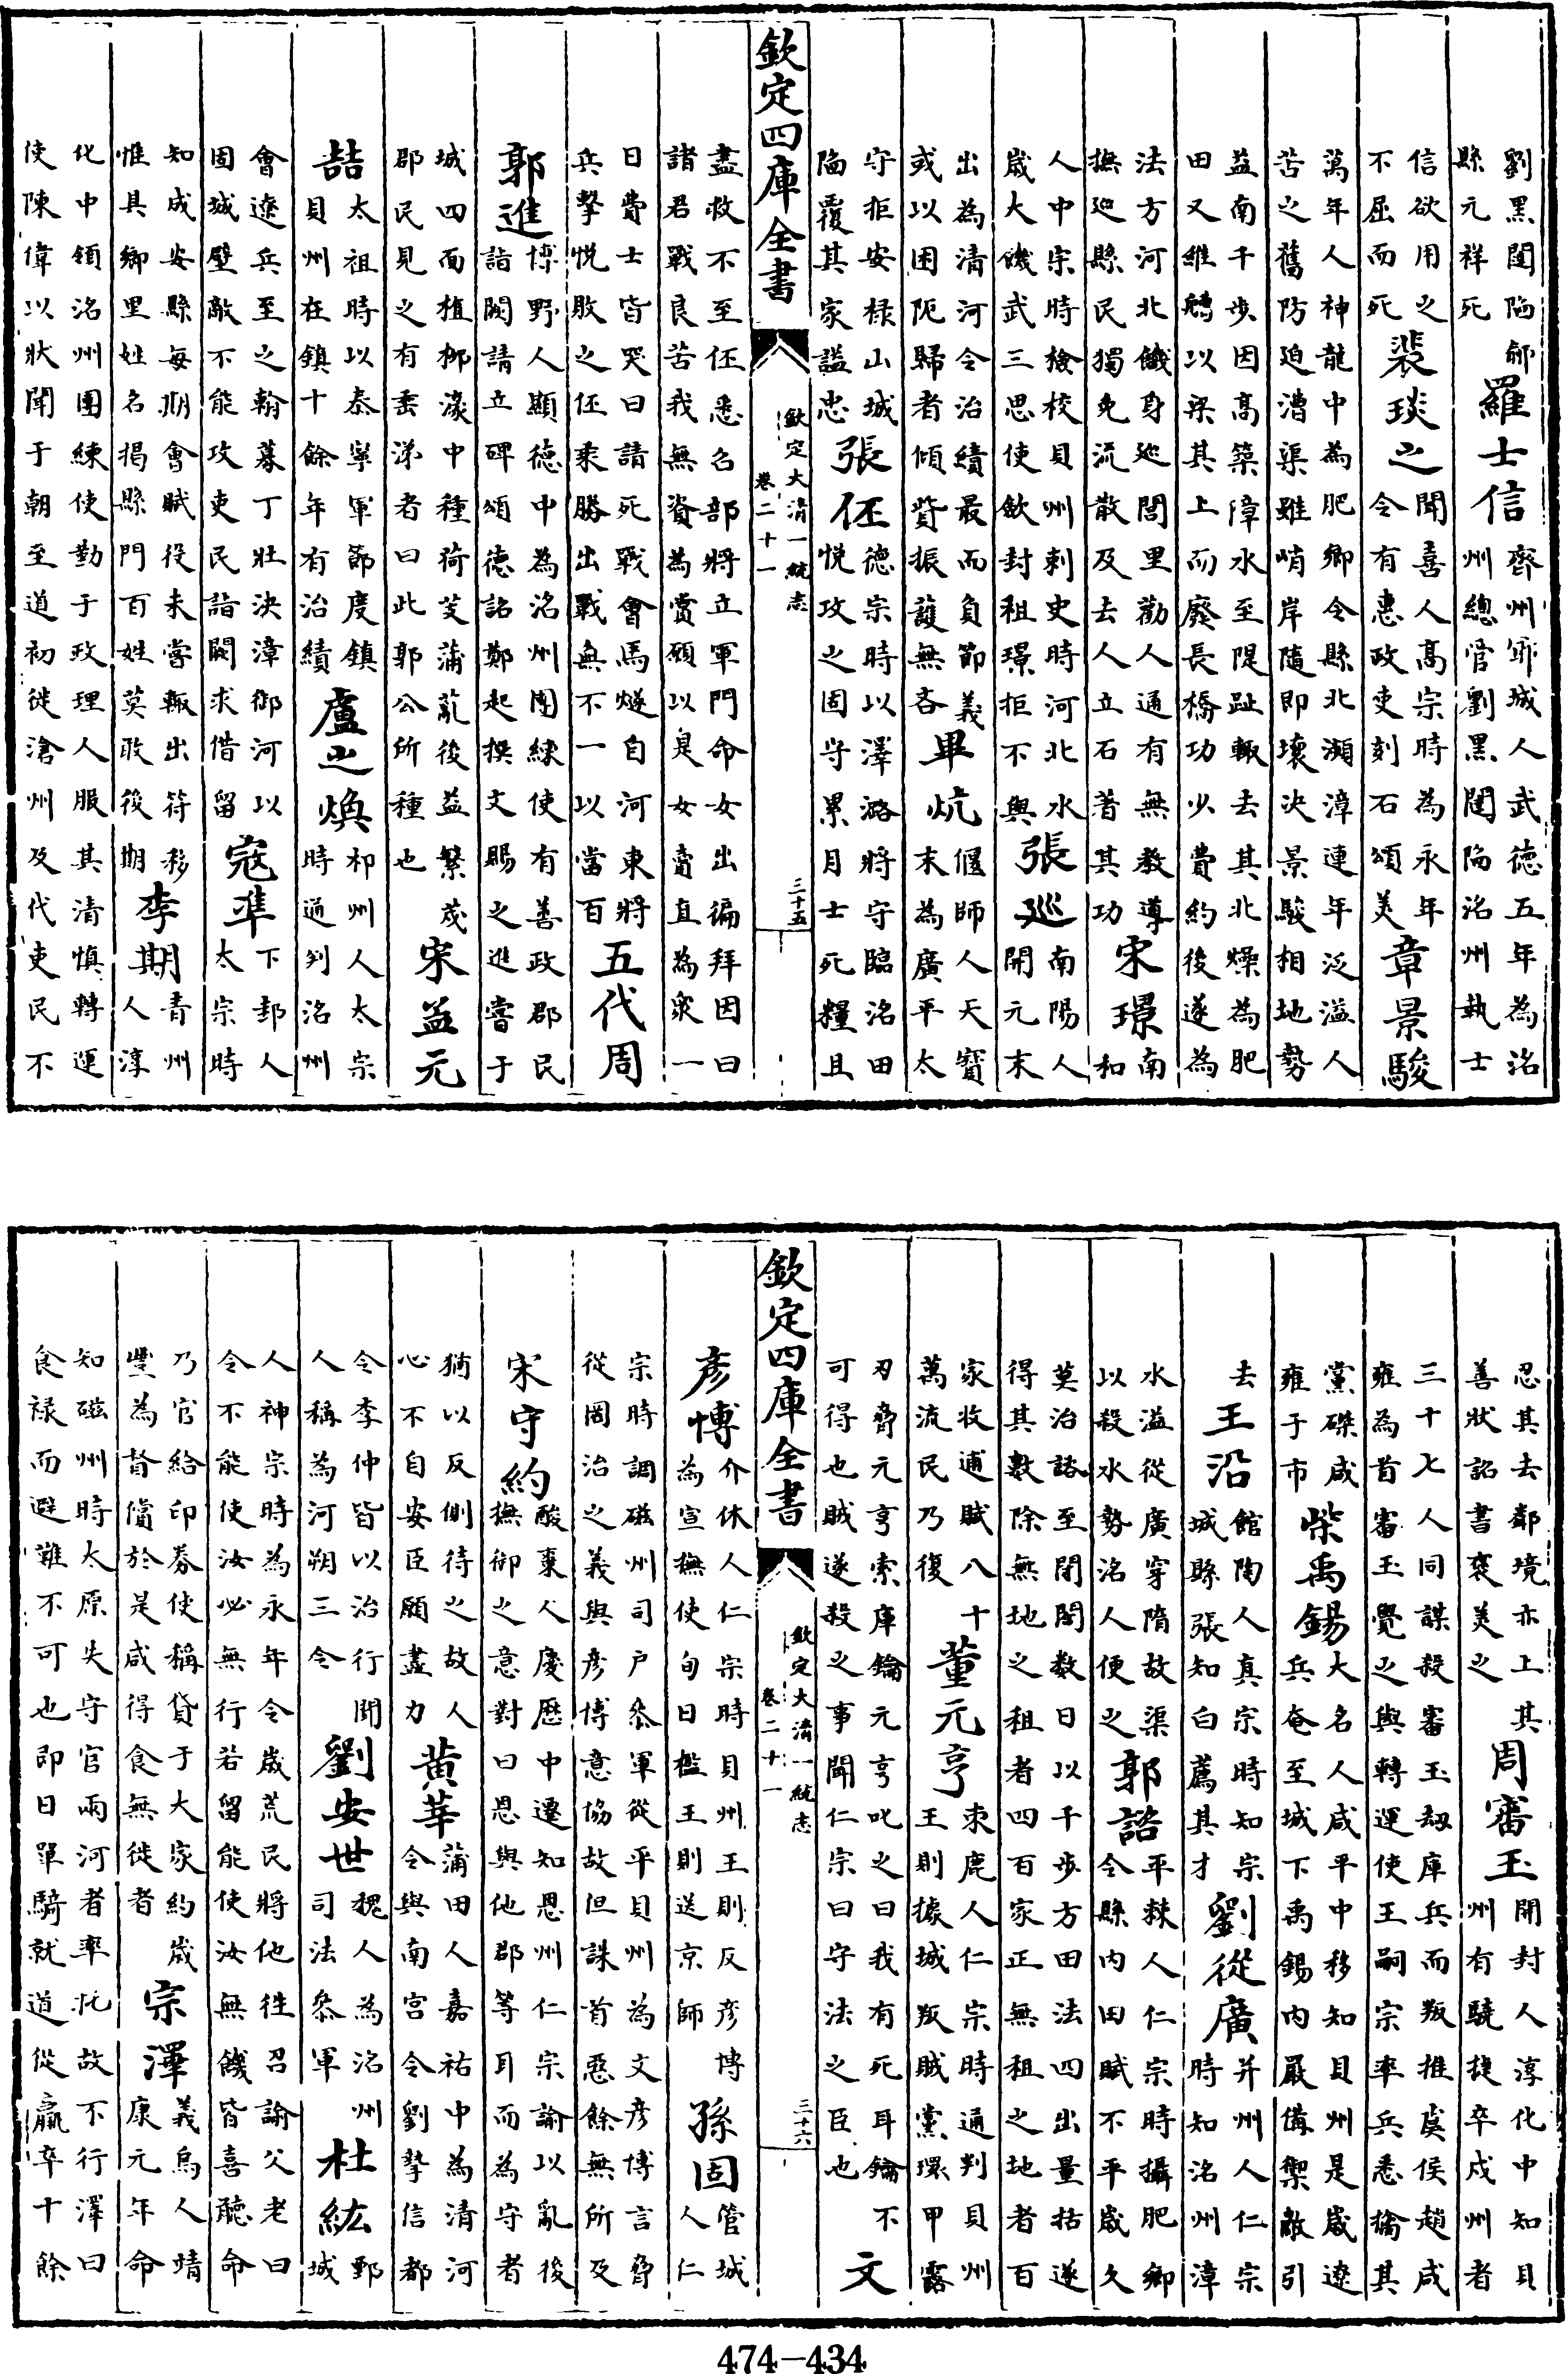 劉黑闥陷鄃縣元祥死羅士信齊州歷城人武德五年為洺州總管劉黑闥陷洺州執士
信欲用之不屈而死裴琰之聞喜人高宗時為永年令有惠政吏刻石頌美韋景駿
萬年人神龍中為肥鄉令縣北瀕漳連年泛溢人苦之舊防迫漕渠雖峭岸隨即壞決景駿相地勢
益南千步因高築障水至隄趾輒去其北燥為肥田又維艚以梁其上而廢長橋功少費約後遂為
法方河北饑身巡閭里勸人通有無教導撫巡縣民獨免流散及去人立石著其功宋璟南和
人中宗時檢校貝州刺史時河北水歲大饑武三思使歛封租璟拒不與張巡南陽人開元末
出為清河令治績最而負節義或以困阨歸者傾貲振護無吝畢炕偃師人天寶末為廣平太
守拒安祿山城陷覆其家諡忠張伾德宗時以澤潞將守臨洺田悅攻之固守累月士死糧且
欽定四庫全書
欽定大清一統志
卷二十一
三十五
盡救不至伾悉召部將立軍門命女出徧拜因曰諸君戰良苦我無資為賞願以是女賣直為衆一
日費士皆哭曰請死戰會馬燧自河東將兵擊悅敗之伾乘勝出戰無不一以當百五代周
郭進博野人顯德中為洺州團練使有善政郡民詣闕請立碑頌德詔鄭起撰文賜之進嘗于
城四面植栁濠中種荷芰蒲薍後益繁茂郡民見之有垂涕者曰此郭公所種也宋益元
喆太祖時以泰寧軍節度鎮貝州在鎮十餘年有治績盧之煥祁州人太宗時通判洺州
會遼兵至之翰募丁壯決漳御河以固城壁敵不能攻吏民詣闕求借留寇準下邽人太宗時
知成安縣每期會賦役未嘗輒出符移惟具鄉里姓名揭縣門百姓莫敢後期李期青州人淳
化中領洺州團練使勤于政理人服其清慎轉運使陳偉以狀聞于朝至道初徙滄州及代吏民不
忍其去鄰境亦上其善狀詔書褒美之周審玉開封人淳化中知貝州有驍捷卒戍州者
三十七人同謀殺審玉刼庫兵而叛推虞侯趙咸雍為首審玉覺之與轉運使王嗣宗率兵悉擒其
黨磔咸雍于市柴禹錫大名人咸平中移知貝州是歲遼兵奄至城下禹錫內嚴備禦敵引
去王沿館陶人真宗時知宗城縣張知白薦其才劉從廣并州人仁宗時知洺州漳
水溢從廣穿隋故渠以殺水勢洺人便之郭諮平棘人仁宗時攝肥鄉令縣內田賦不平歲久
莫治諮至閉閤数日以千步方田法四出量括遂得其數除無地之租者四百家正無租之地者百
家收逋賦八十萬流民乃復董元亨束鹿人仁宗時通判貝州王則據城叛賊黨環甲露
刃脅元亨索庫鑰元亨叱之曰我有死耳鑰不可得也賊遂殺之事聞仁宗曰守法之臣也文
欽定四庫全書
欽定大清一統志
卷二十一
三十六
彥博介休人仁宗時貝州王則反彥博為宣撫使旬日檻王則送京師孫固管城人仁
宗時調磁州司戶叅軍從平貝州為文彥博言脅從罔治之義與彥博意協故但誅首惡餘無所及
宋守約酸棗人慶歷中遷知恩州仁宗諭以亂後撫御之意對曰恩與他郡等耳而為守者
猶以反側待之故人心不自安臣願盡力黃莘蒲田人嘉祐中為清河令與南宮令劉摯信都
令李仲皆以治行聞人稱為河朔三令劉安世魏人為洺州司法叅軍杜紘鄄城
人神宗時為永年令歲荒民將他徃召諭父老曰令不能使汝必無行若留能使汝無饑皆喜聽命
乃官給印券使稱貸于大家約歲豐為督償於是咸得食無徙者宗澤義烏人靖康元年命
知磁州時太原失守官兩河者率托故不行澤曰食祿而避難不可也即日單騎就道從羸卒十餘
474-434